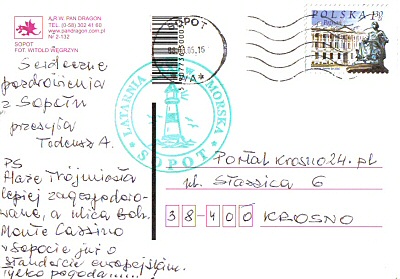 AJR W. PAN DRAGON
TEL. (0-58) 302 41 60
www.pandragon.com.pl
Nr 2-132
SOPOT
FOT. WITOLD WĘGRZYN
Serdeczne
pozdrowienia
z Sopotu
przesyła
Tadeusz A.
PS
Plaże Trójmiasta
lepiej zagospodaro-
wane, a ulica Boh.
Monte Cassino
w Sopocie już o
standarcie europejskim.
Tylko pogoda......!
SOPOT
LATARNIA MORSKA
SOPOT
POLSKA
Poznań
Portal Krosno24.pl
ul. Staszica 6
38-400 KROSNO